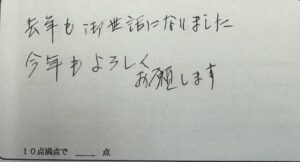 去年も御世話になりました
今年もよろしく
お願します
10点満点で ____ 点